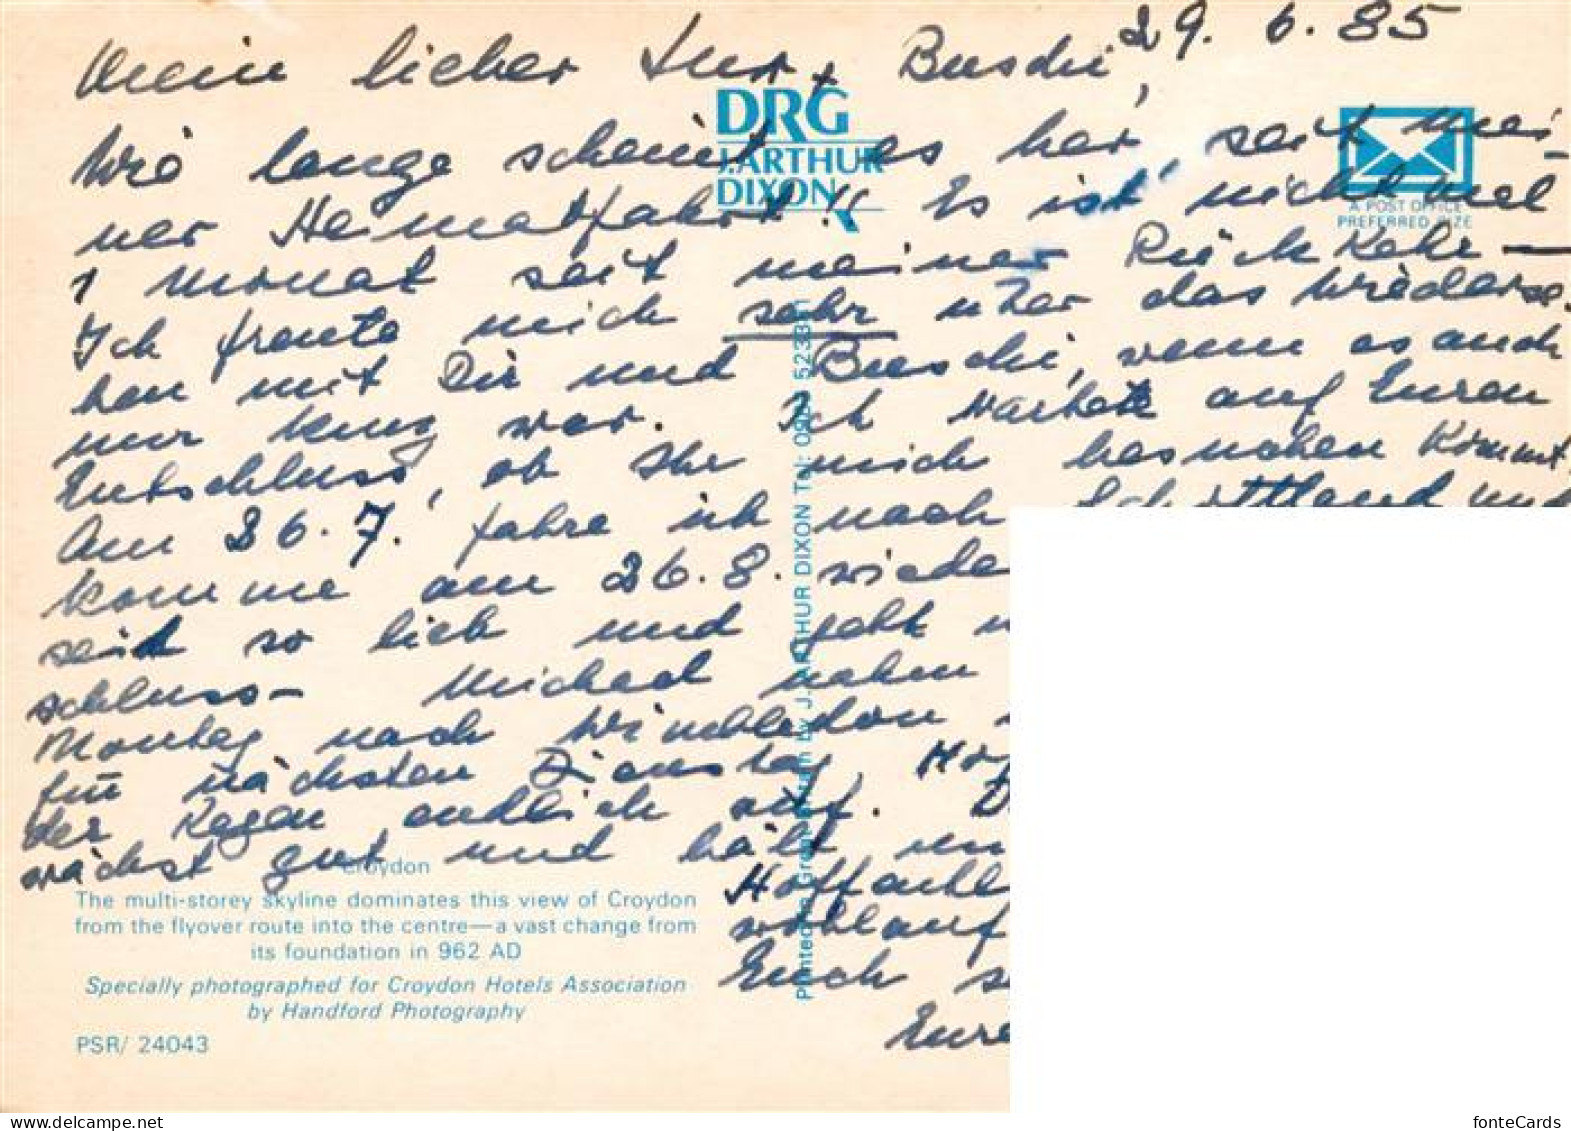 29. 6. 85
Mein lieber Kurt, Buschi,
DRG
J. ARTHUR
DIXON
A POST OFFICE
PREFERRED SIZE
Wie lange scheint es her, seit mei-
ner Heimatfahrt!! Es ist nicht mal
1 Monat seit meiner Rückkehr —
Ich freute mich sehr über das Wiederse-
hen mit Dir und Buschi, wenn es auch
nur kurz war. Ich warte auf Euren
Entschluss, ob Ihr mich besuchen kommt.
Am 26. 7. fahre ich nach Schottland und
komme am 26. 8. wieder
seid so lieb und gebt
schluss – Michael nahm
Montag nach Wimbledon
für nächsten Dienstag,
der Regen endlich auf.
wächst gut und hält un
Hoffentl
wohlauf
Euch s
Eure
Croydon
The multi-storey skyline dominates this view of Croydon
from the flyover route into the centre—a vast change from
its foundation in 962 AD
Specially photographed for Croydon Hotels Association
by Handford Photography
PSR/ 24043
Printed in Great Britain by J. ARTHUR DIXON Tel: 0983 523381
fonteCards